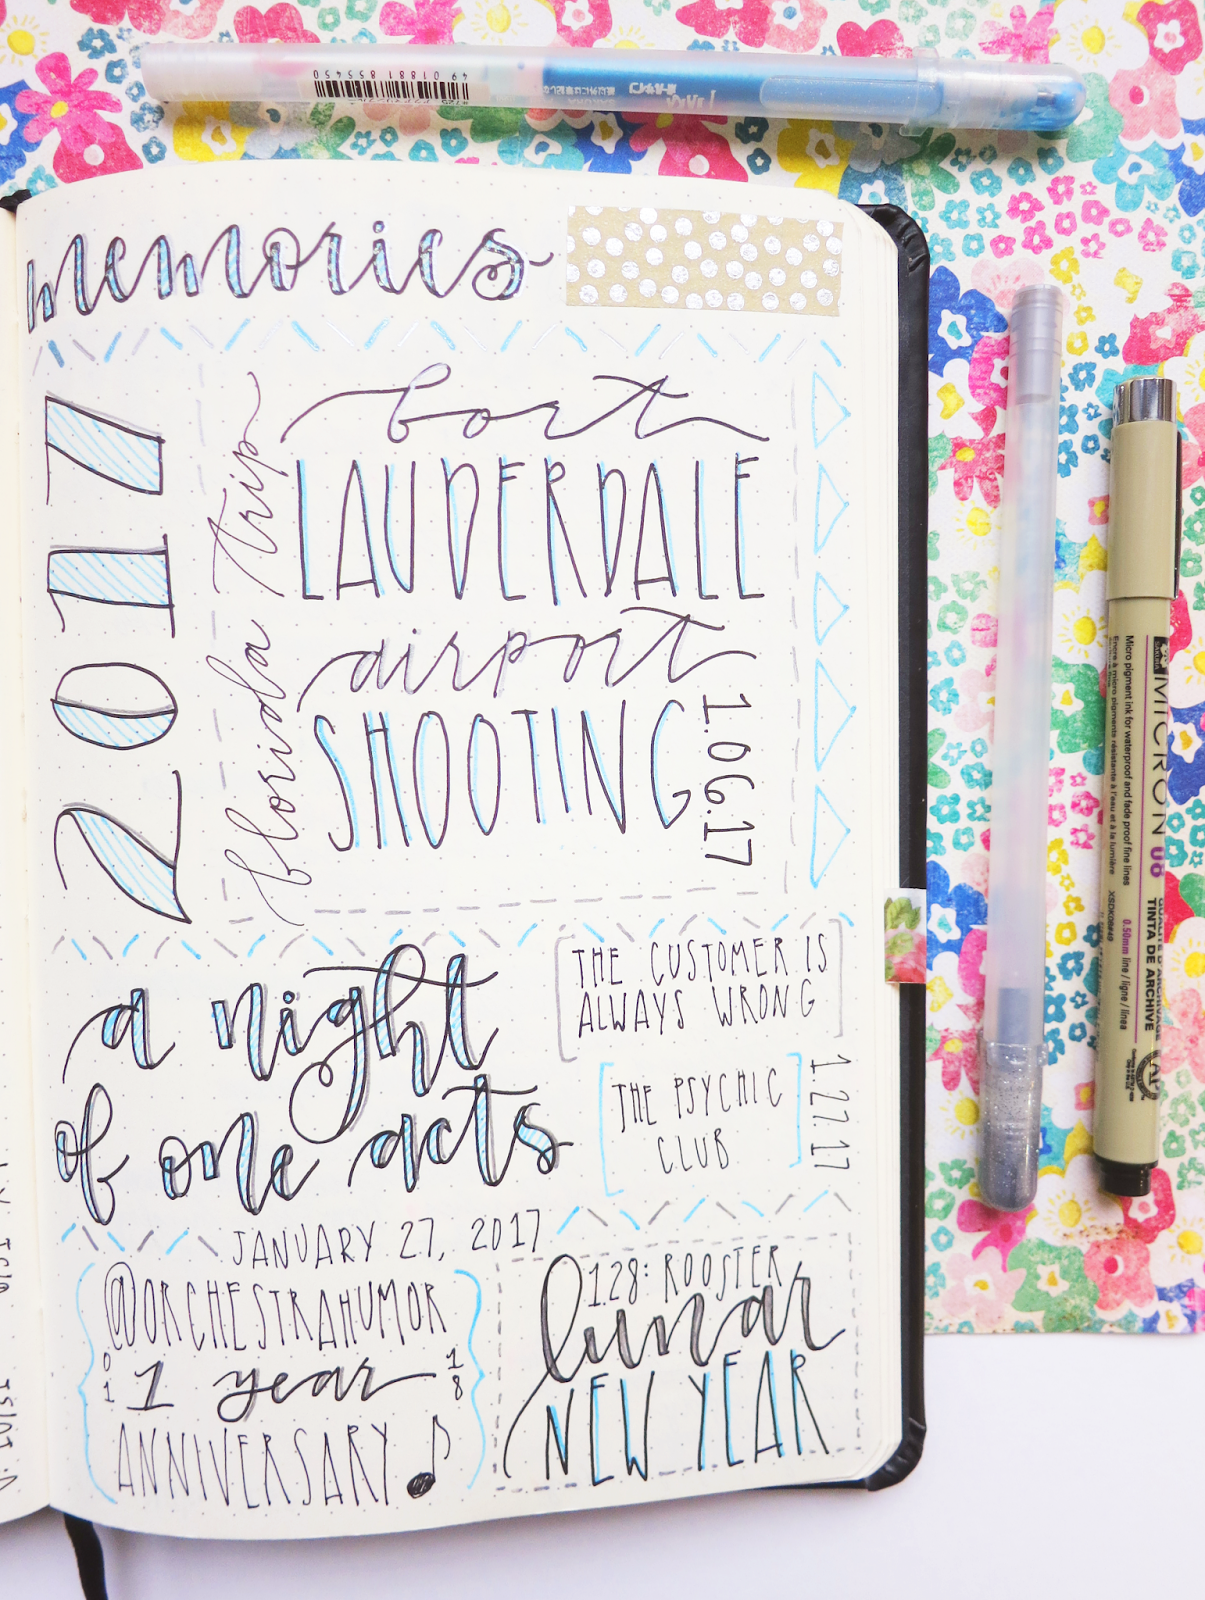 4901881 855450
memories
2017
florida trip
fort
LAUDERDALE
airport
SHOOTING
1.06.17
a night
of one acts
THE CUSTOMER IS
ALWAYS WRONG
THE PSYCHIC
CLUB
1.27.17
JANUARY 27, 2017
@ORCHESTRAHUMOR
01
1 year
18
ANNIVERSARY
1.28: ROOSTER
lunar
NEW YEAR
MICRON 08
Micro pigment ink for waterproof and fade proof fine lines
Encre à micro pigments résistante à l'eau et à la lumière
XSDK08#49
0.50mm line / ligne / línea
TINTA DE ARCHIVE
AP